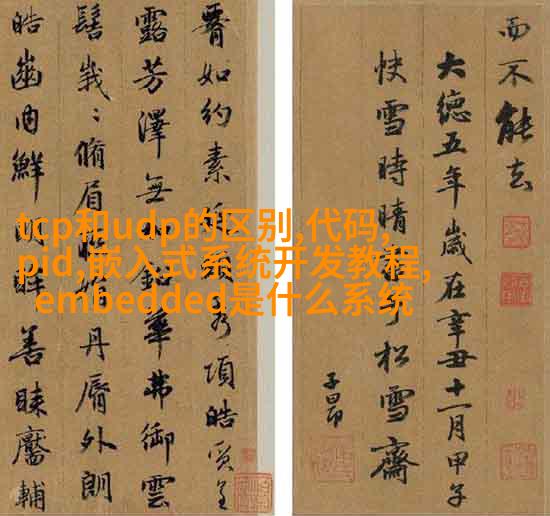 如約素 秀項皓質呈
露芳澤無 鉛華弗御雲
髻峩〻脩眉 丹脣外朗
皓齒内鮮 眸善睞靨輔
而不能去
大德五年歲在辛丑十一月甲子
快雪時晴 于松雪齋
子昂
tcp和udp的区别,代码,
pid,嵌入式系统开发教程,
embedded是什么系统